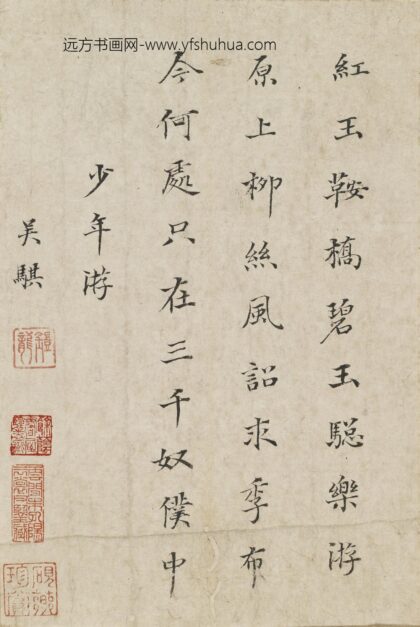 远方书画网-www.yfshuhua.com
紅玉鞍橋碧玉驄樂游
原上柳絲風詔求季布
今何處只在三千奴僕中
少年游
吳騏